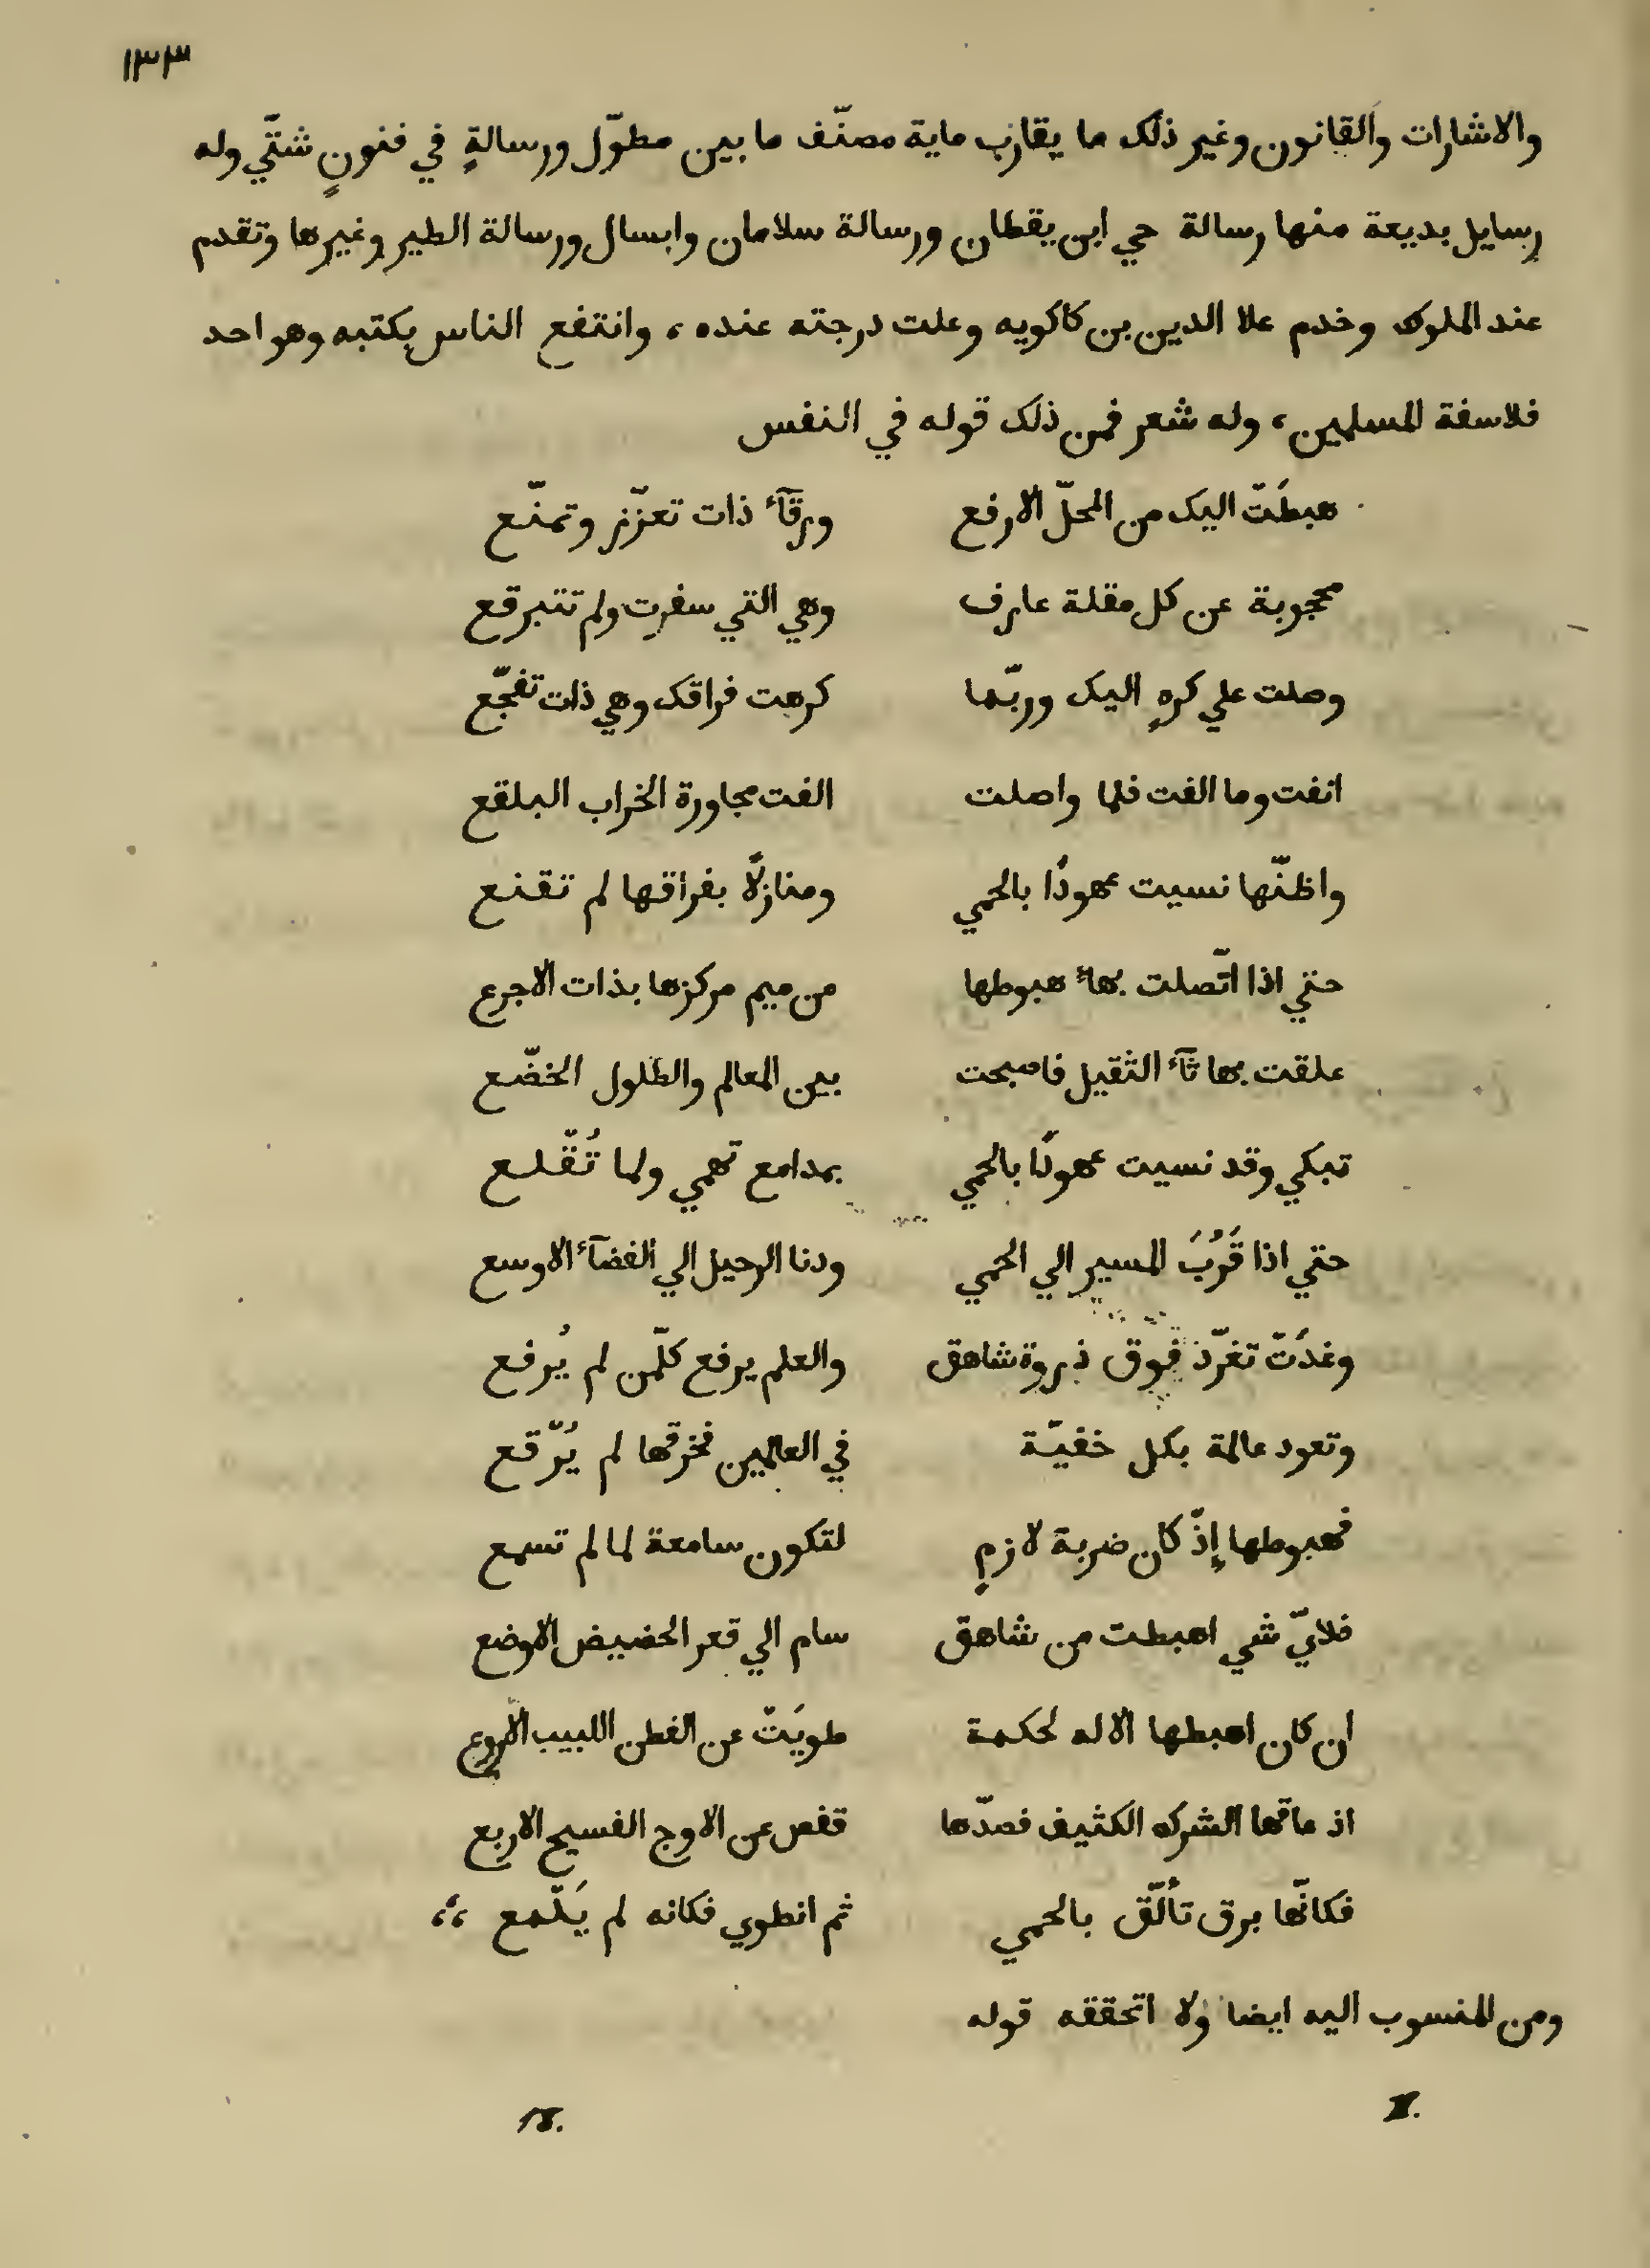 ١٣٣
والاشارات والقانون وغير ذلك ما يقارب ماية مصنّف ما بين مطوّل ورسالةٍ في فنونٍ شتّي وله
رسايل بديعة منها رسالة حي ابن يقطان ورسالة سلامان وابسال ورسالة الطير وغيرها وتقدم
عند الملوك وخدم علا الدين بن كاكويه وعلت درجته عنده، وانتفع الناس بكتبه وهو احد
فلاسفة المسلمين، وله شعر فمن ذلك قوله في النفس
هبطَتْ اليك من المحلّ الارفع ورقآء ذات تعزّزٍ وتمنّع
محجوبة عن كل مقلة عارف وهي التي سفرت ولم تتبرقع
وصلت علي كرهٍ اليك وربّما كرهت فراقك وهي ذات تفجّع
انفت وما الفت فلما واصلت الفت مجاورة الخراب البلقع
واظنّها نسيت عهودًا بالحمي ومنازلًا بفراقها لم تقنع
حتي اذا اتّصلت بهاء هبوطها من ميم مركزها بذات الاجرع
علقت بها ثآء الثقيل فاصبحت بين المعالم والطلول الخضّع
تبكي وقد نسيت عهودًا بالحمي بمدامع تهمي ولما تُقْلع
حتي اذا قَرُبَ المسير الي الحمي ودنا الرحيل الي الفضآء الاوسع
وغدَتْ تغرّد فوق ذروة شاهق والعلم يرفع كلّمن لم يُرفع
وتعود عالمة بكل خفيّة في العالمين فخرقها لم يُرْقع
فهبوطها إذْ كان ضربة لازمٍ لتكون سامعة لما لم تسمع
فلايّ شي اهبطت من شاهق سام الي قعر الحضيض الاوضع
ان كان اهبطها الاله لحكمة طويَتْ عن الفطن اللبيب الاروع
اذ عاقها الشرك الكثيف فصدّها قفص عن الاوج الفسيح الاربع
فكانّها برق تألّق بالحمي ثم انطوي فكانه لم يَلْمع
ومن المنسوب اليه ايضا ولا اتحققه قوله